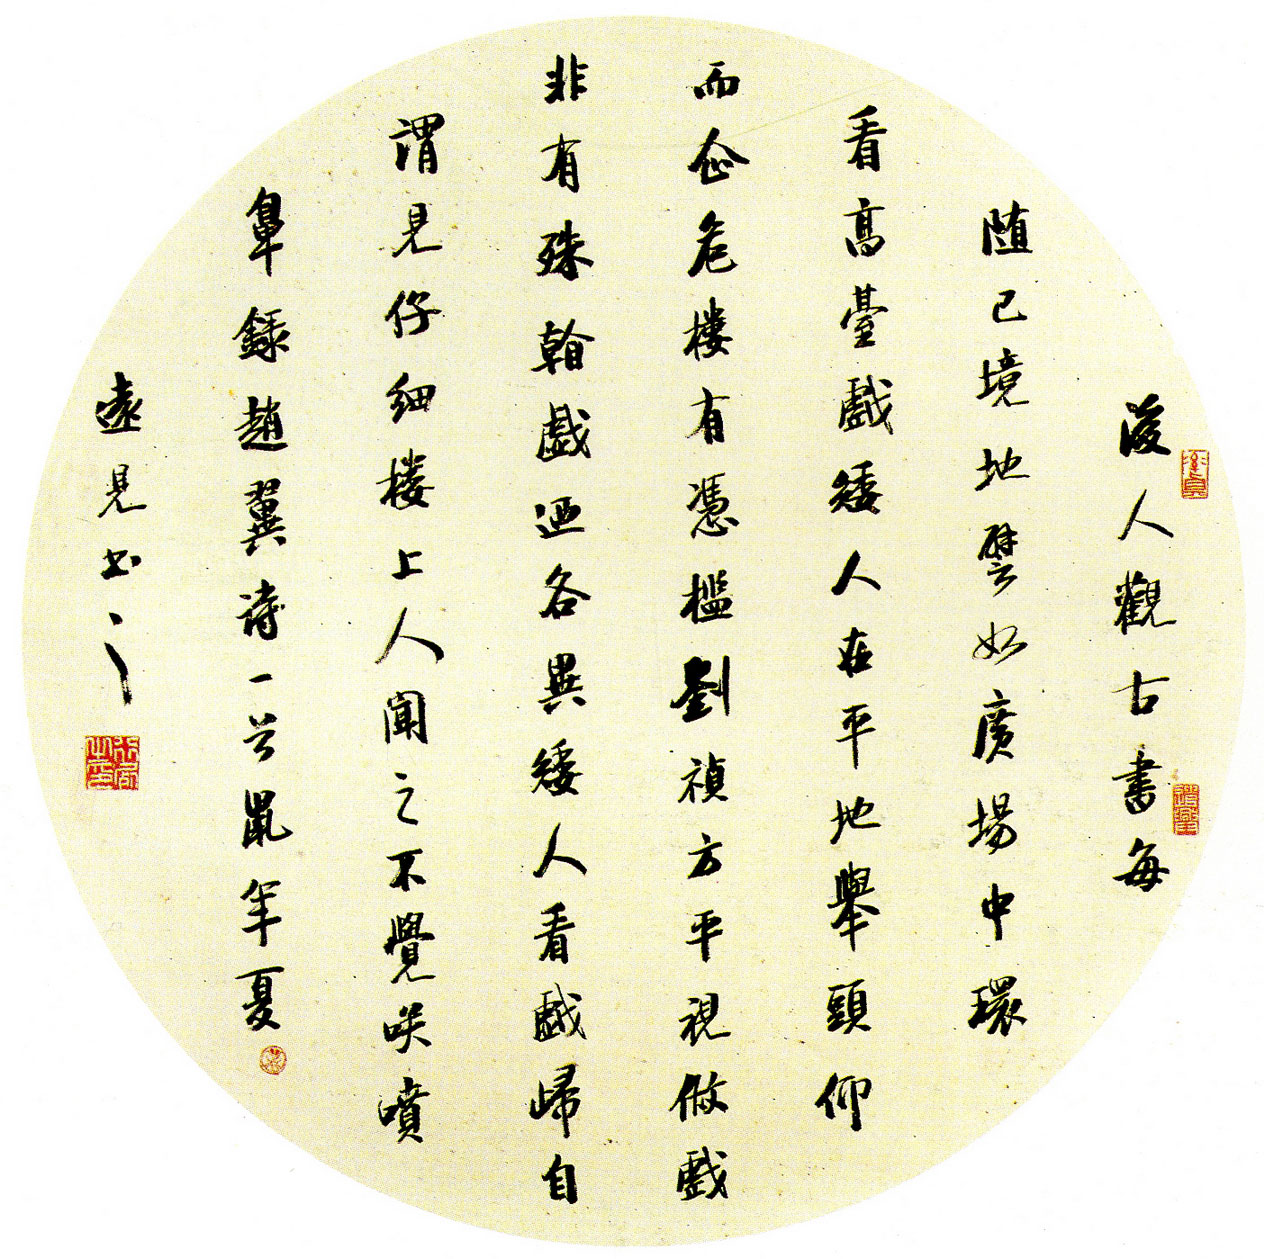 後人觀古書每
随己境地譬如廣場中環
看高臺戲矮人在平地舉頭仰
而企危樓有憑檻劉禎方平視做戲
非有殊翰戲迺各異矮人看戲歸自
謂見仔細楼上人聞之不覺咲噴
鼻錄趙翼诗一首鼠年夏
遠見书之